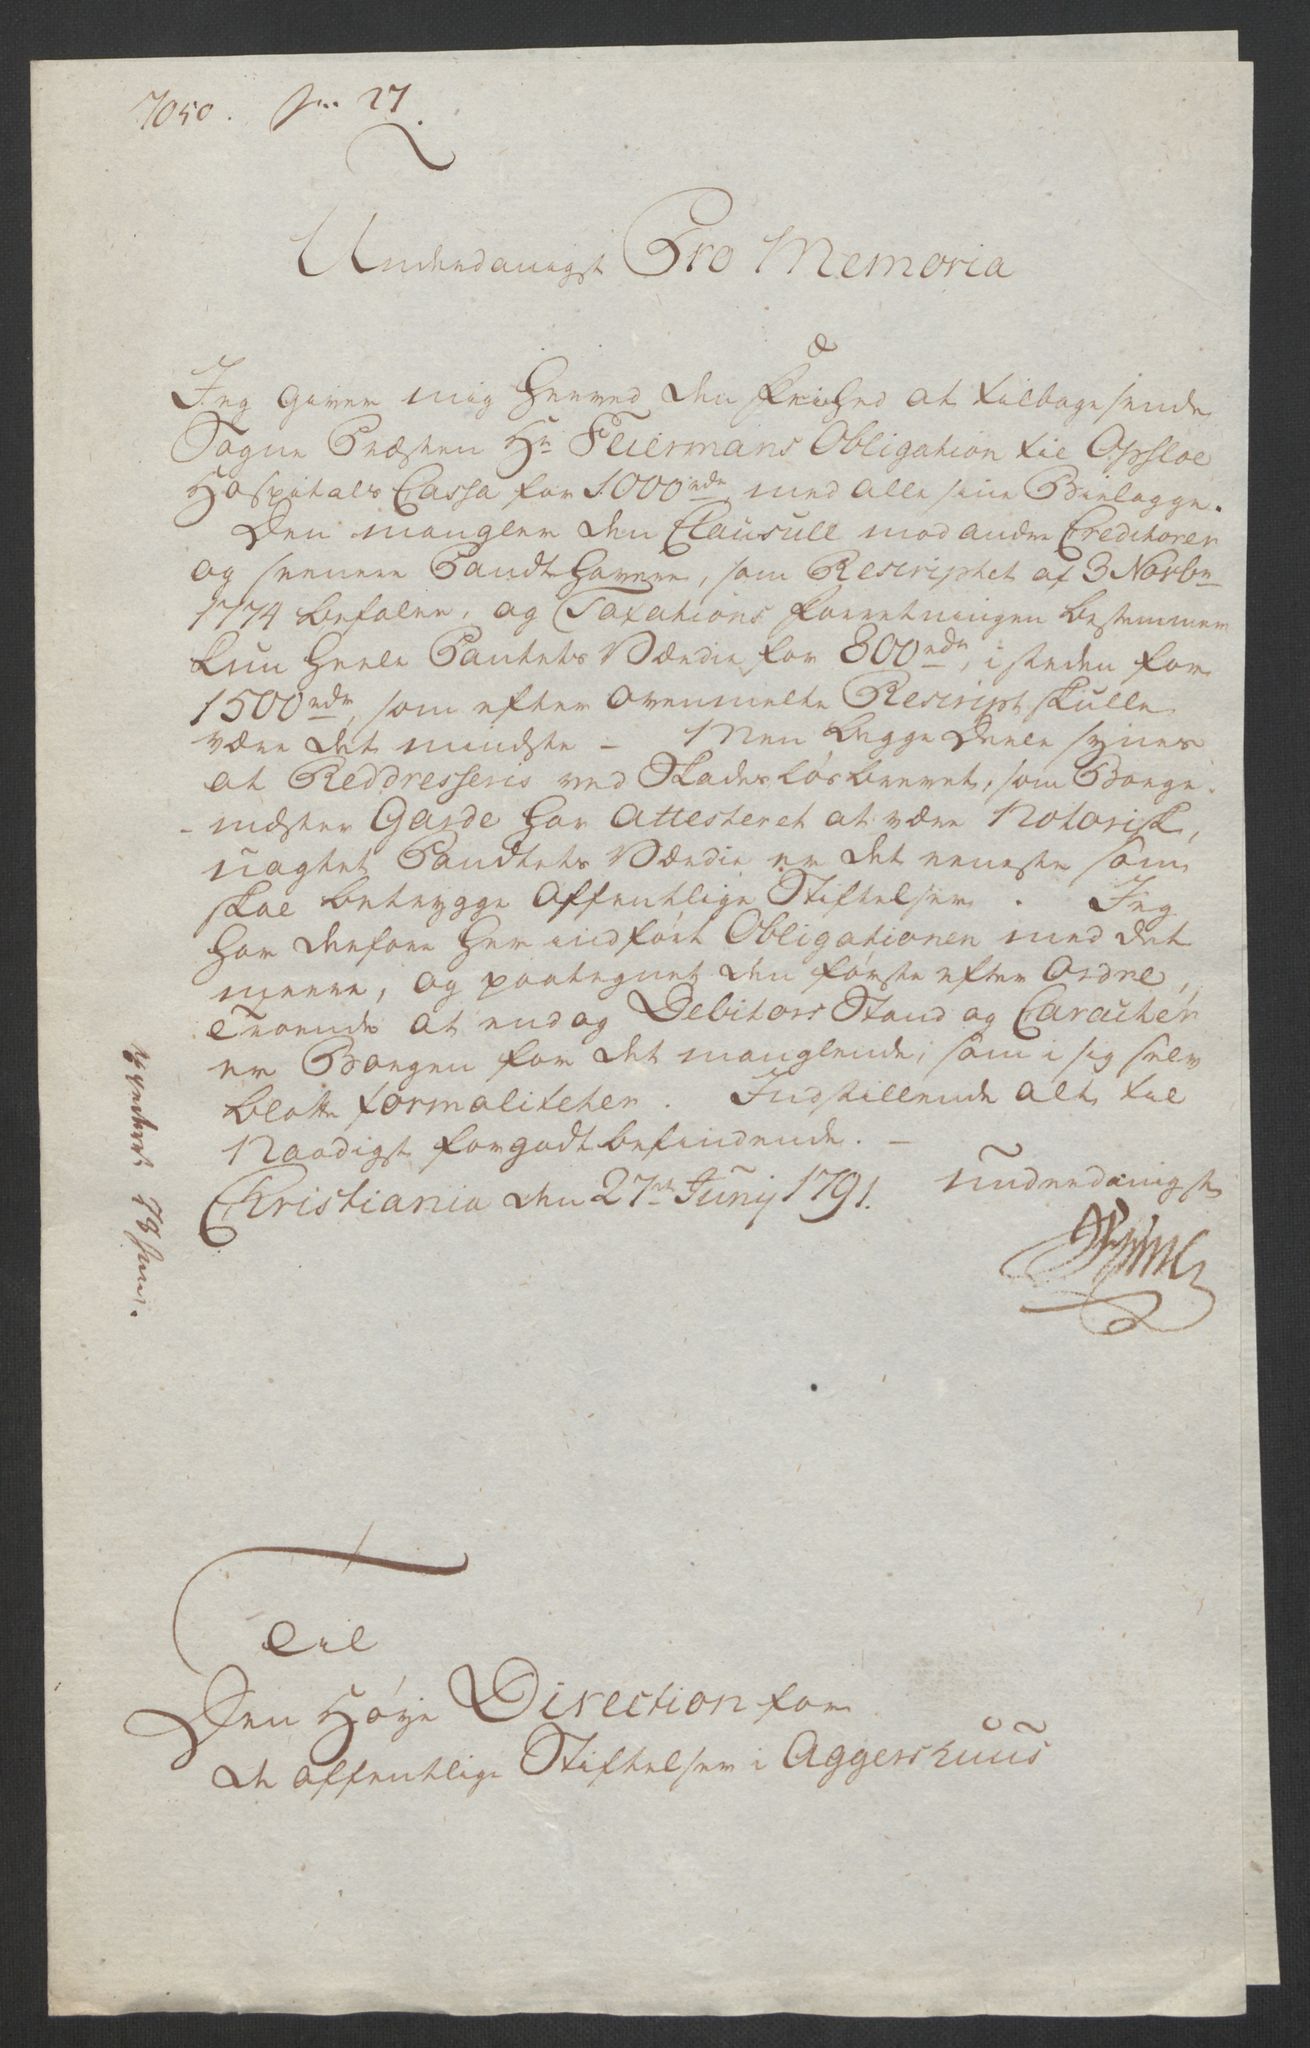 7050. Jun 27.
Underdanigst Pro Memoria
Jeg giver mig herved den Frihed at tilbagesende
Sogne Præsten Hr Feiermans Obligation til Opsloe
Hospitals Cassa for 1000 rdr med alle sine Bielagge.
Den mangler den Clausull mod andre Creditorer
og seenere Pandthavere, som Rescriptet af 3 Novbr
1774 befaler, og Taxations Forretningen bestemmer
kun heele Pantets Værdie for 800 rdr, i steden for
1500 rdr, som efter ovenmelte Rescript skulle
være det mindste – Men begge Deele synes
at Reddresseris ved Skadesløsbrevet, som Borge-
-mester Garde har Attesteret at være Notorisk,
uagtet Pandtets Værdie er det eeneste som
skal betrygge offentlige Stiftelser. Jeg
har derfore her indført Obligationen med det
meere, og paategnet den første efter Ordre,
troende at endog Debitors Stand og Carachter
er Borgen for det manglende, som i sig selv
blotte formaliteter. Indstillende alt til
Naadigst forgodtbefindende. –
Christiania den 27de Junij 1791. underdanigst
Til
Den Høye Direction for
de offentlige Stiftelser i Aggershuus